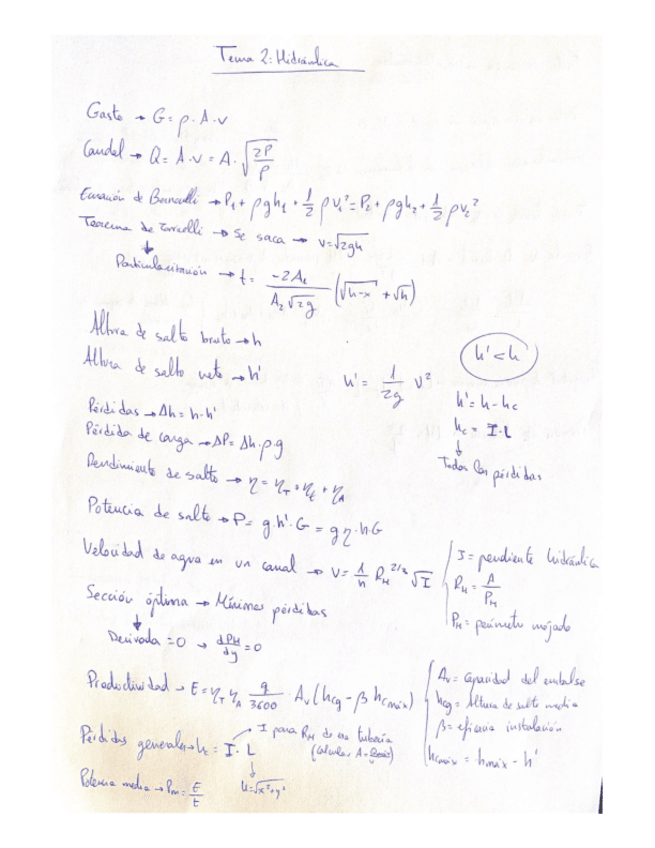 Tema 2: Hidráulica
Gasto → G = ρ · A · v
Caudal → Q = A · v = A · √(2P/ρ)
Ecuación de Bernoulli → P₁ + ρgh₁ + 1/2 ρv₁² = P₂ + ρgh₂ + 1/2 ρv₂²
Teorema de Torricelli → Se saca → v = √2gh
↓
Particularización → t = -2A₁ / (A₂√2g) (√h-x + √h)
Altura de salto bruto → h
Altura de salto neto → h'
h' = 1/2g v²
h' < h
h' = h - hc
hc = I · L
↓
Todas las pérdidas
Pérdidas → Δh = h - h'
Pérdida de carga → ΔP = Δh · ρ · g
Rendimiento de salto → η = η_T + η_t + η_A
Potencia de salto → P = g · h' · G = g η · h · G
Velocidad de agua en un canal → v = 1/n R_H^2/3 √I
I = pendiente hidráulica
R_H = A/P_M
P_M = perímetro mojado
Sección óptima → Mínimas pérdidas
↓
Derivada = 0 → dP_M/dy = 0
Productividad → E = η_T η_A g/3600 A_v (h_cg - β h_cmáx)
A_v = capacidad del embalse
h_cg = Altura de salto media
β = eficacia instalación
h_cmáx = h_máx - h'
Pérdidas generales → h_c = I · L
I para R_H de una tubería
(calcular A =
↓
L = √x²+y²
Potencia media → P_m = E/t